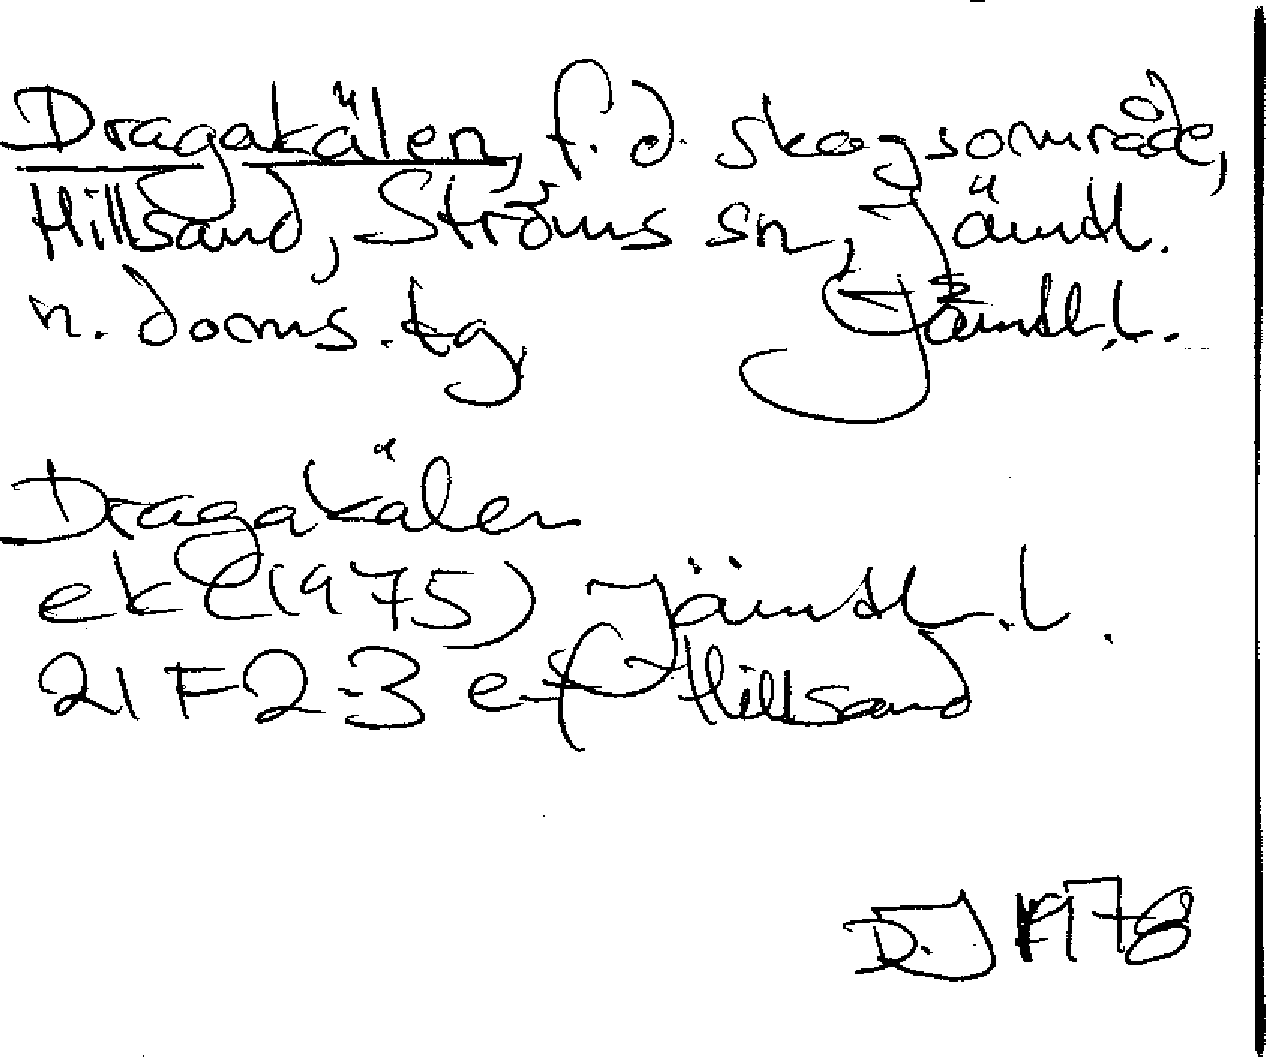 Dragakälen, f. d. skogsområde,
Hillsand, Ströms sn, Jämtl.
n. doms. tg, Jämtl. l.
Dragakälen
ek (1975) Jämtl. l.
21 F 2-3 ef Hillsand
D.J 1978